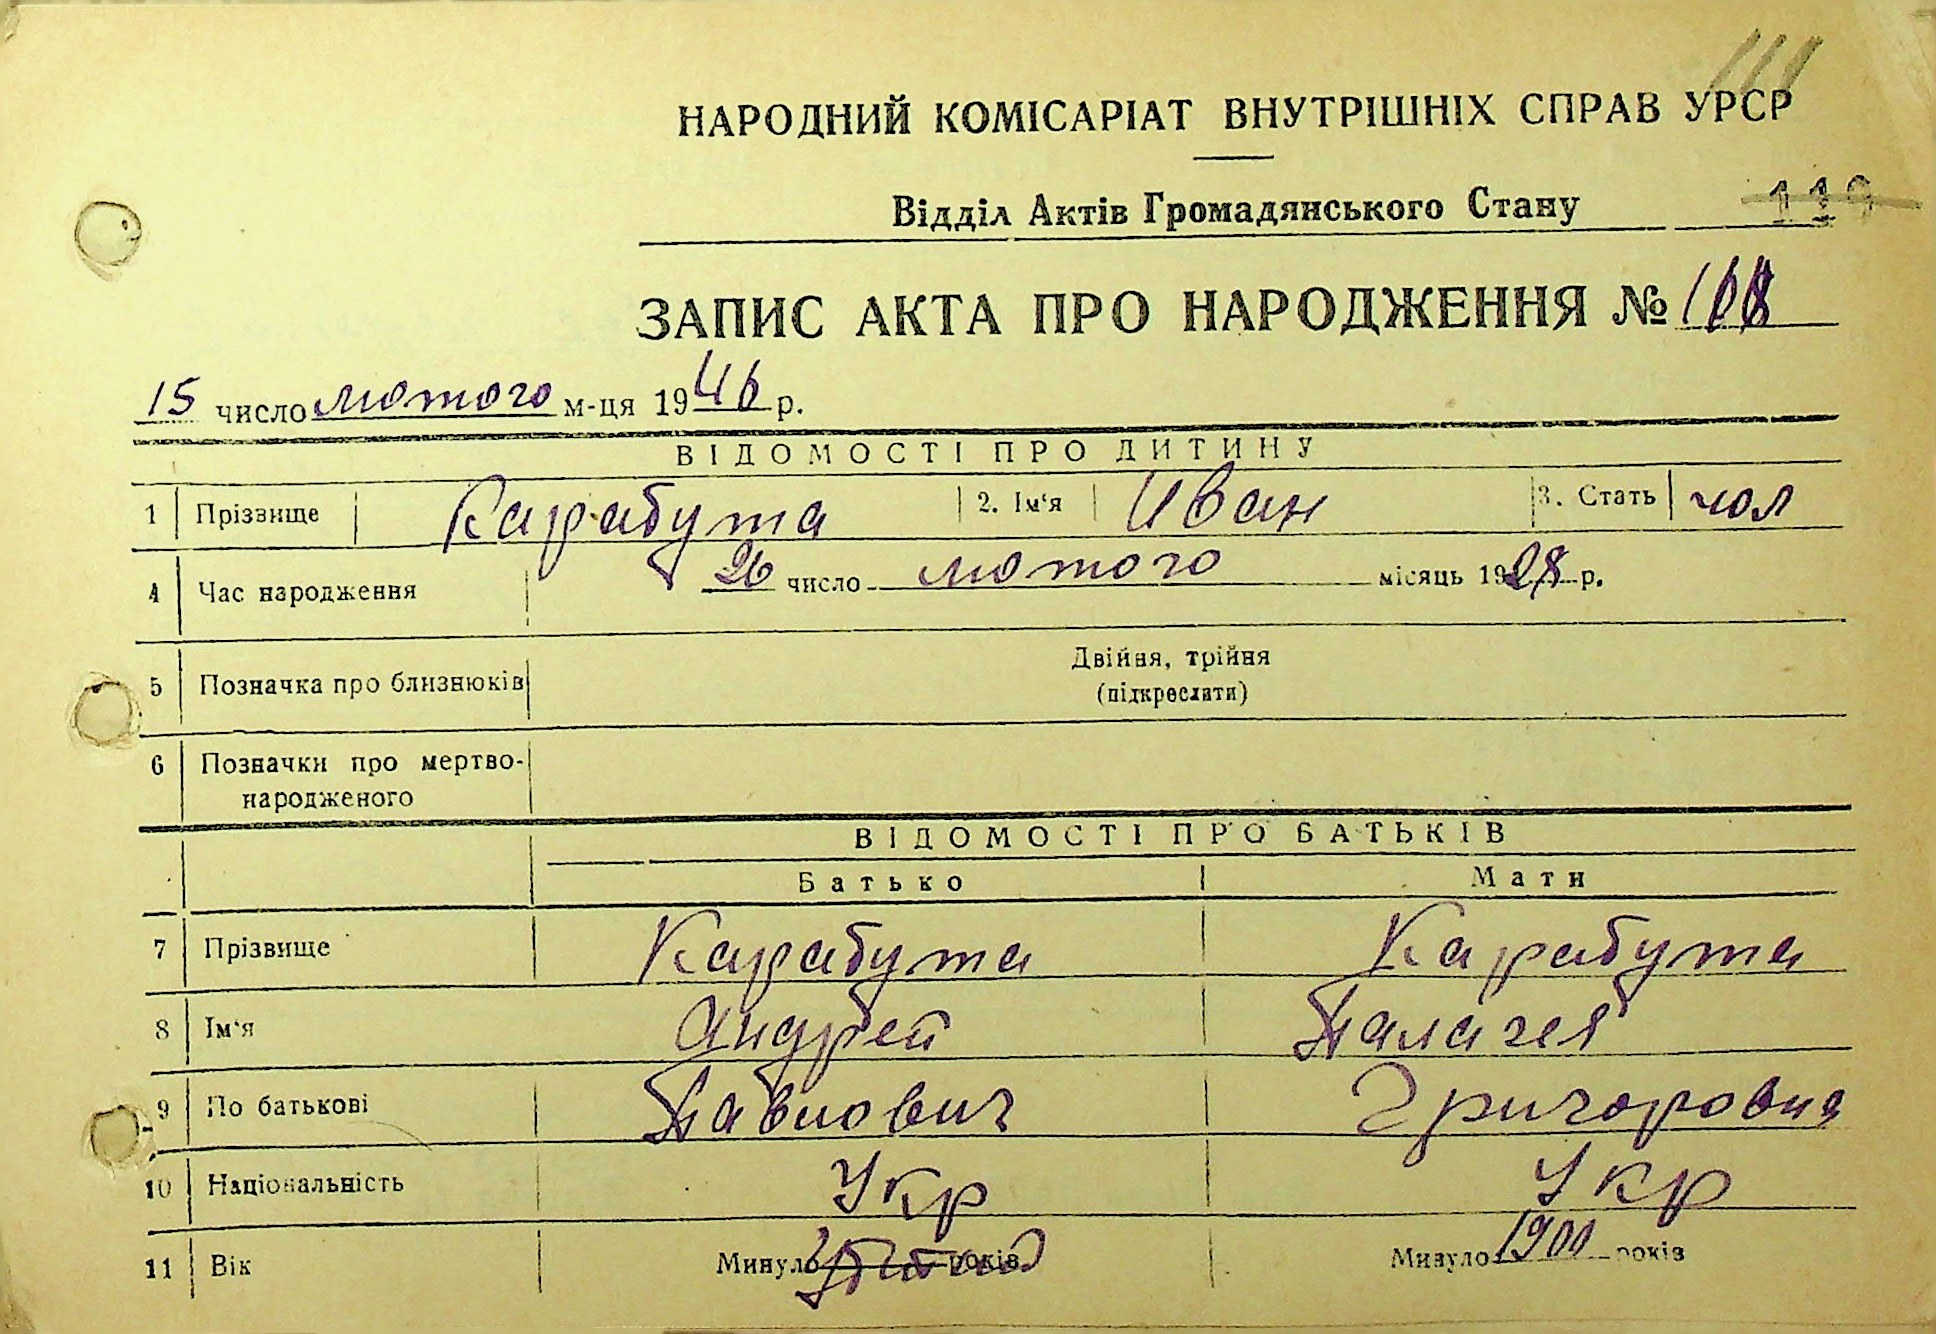 111
НАРОДНИЙ КОМІСАРІАТ ВНУТРІШНІХ СПРАВ УРСР
Відділ Актів Громадянського Стану
ЗАПИС АКТА ПРО НАРОДЖЕННЯ №
15 число лютого м-ця 1946 р.
ВІДОМОСТІ ПРО ДИТИНУ
1 Прізвище Карабута 2. Ім'я Иван 3. Стать чол
4 Час народження 26 число лютого місяць 1928 р.
5 Позначка про близнюків Двійня, трійня
(підкреслити)
6 Позначки про мертво-
народженого
ВІДОМОСТІ ПРО БАТЬКІВ
Батько Мати
7 Прізвище Карабута Карабута
8 Ім'я Андрей Палагея
9 По батькові Павлович Григоровна
10 Національність Укр Укр
11 Вік Минуло років Минуло 1900 років